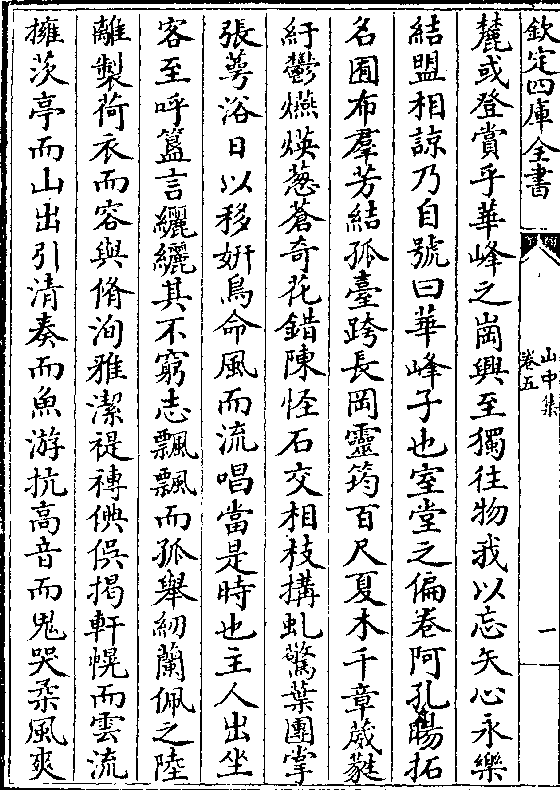 欽定四庫全書
山中集
卷五
一
麓或登賞乎華峰之崗興至獨往物我以忘矢心永樂
結盟相諒乃自號曰華峰子也室堂之偏卷阿孔暘拓
名囿布羣芳結孤臺跨長岡靈筠百尺夏木千章葳蕤
紆鬱燕煐葱蒼奇花錯陳怪石交相枝搆虬驚葉團掌
張萼浴日以移妍鳥命風而流唱當是時也主人出坐
客至呼簋言纚纚其不窮志飄飄而孤舉紉蘭佩之陸
離製荷衣而容與脩洵雅潔褆禣倎俁揭軒幌而雲流
擁茨亭而山出引清奏而魚游抗高音而鬼哭柔風爽